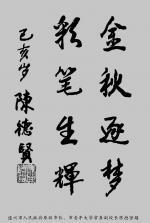 金秋逐梦
彩笔生輝
己亥岁 陳德賢